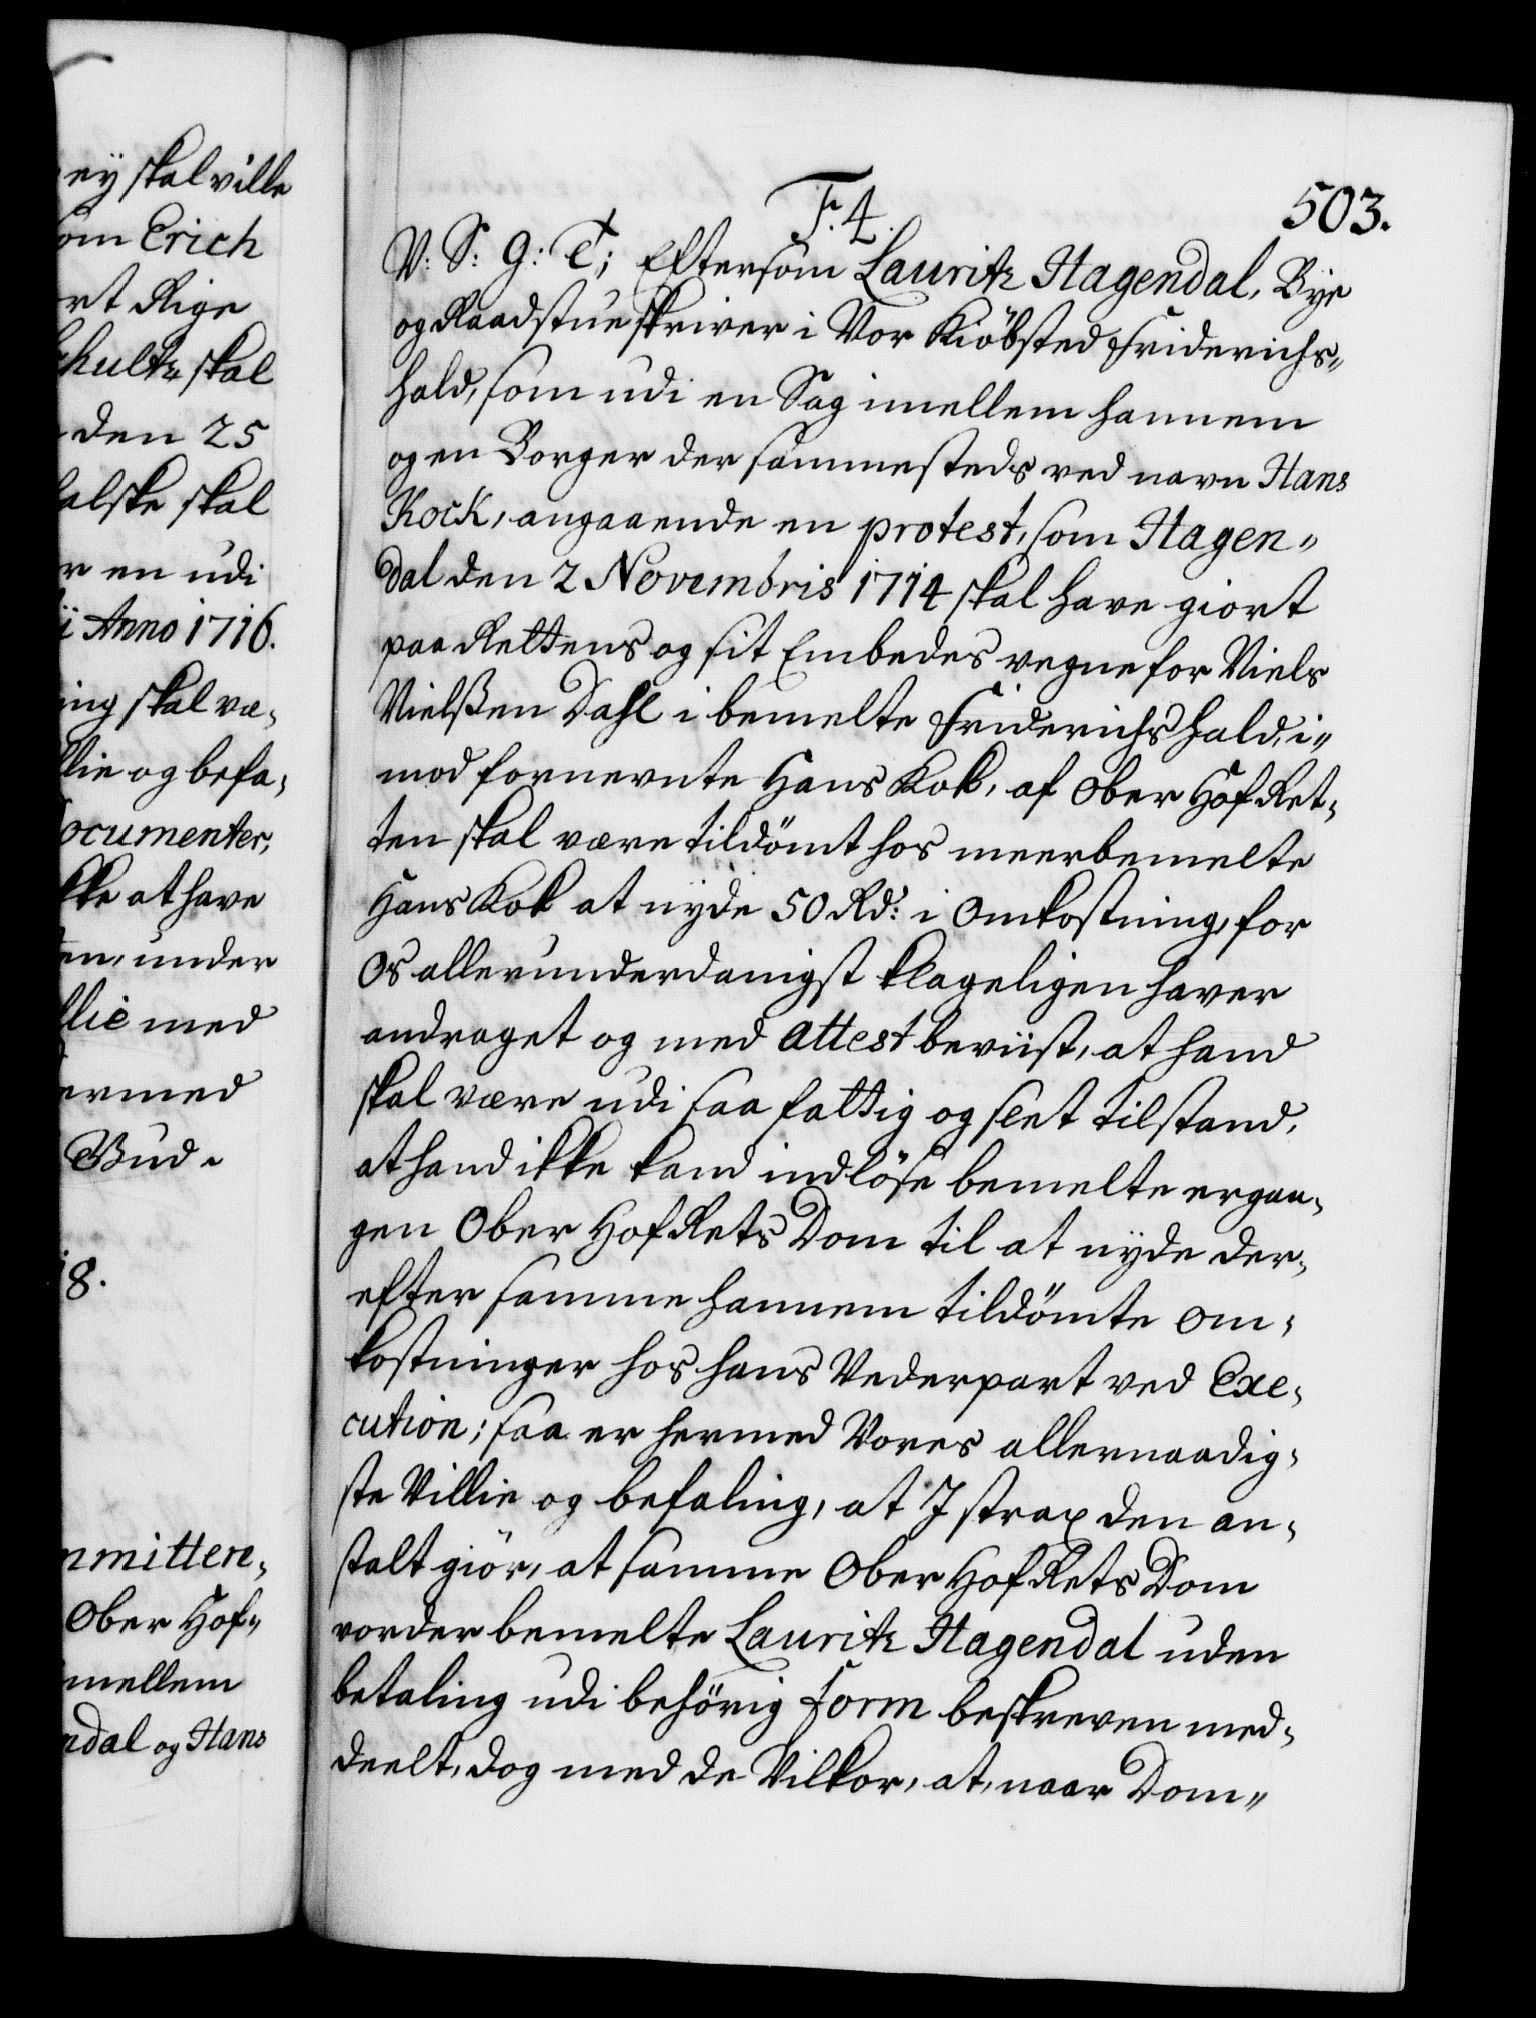 ey skal ville
om Erich
rt Rige
hultz skal
den 25
alske skal
r en udi
ii Anno 1716.
ing skal væ,
llie og befa,
ocumenter,
kke at have
en, under
llie med
ermed
Bud.
18.
mmittere,
Ober Hof„
mellem
ndal og Hans
F. 4.
503.
V: S: G: T; Eftersom Lauritz Hagendal, Bye
og Raadstueskriver i Vor Kiöbsted Friderichs„
hald, som udi en Sag imellem hannem
og en Borger der sammesteds ved navn Hans
Kock, angaaende en protest, som Hagen„
dal den 2 Novembris 1714 skal have giort
paa Rettens og sit Embedes vegne for Niels
Nielßen Dahl i bemelte Friderichshald, i„
mod fornevnte Hans Kok, af Ober HofRet,
ten skal være tildömt hos meerbemelte
Hans Kok at nyde 50 Rd: i Omkostning, for
Os allerunderdanigst klageligen haver
andraget og med attest beviist, at hand
skal være udi saa fattig og slet tilstand,
at hand ikke kand indlöse bemelte ergan,
gen Ober HofRets Dom til at nyde der,
efter samme hannem tildömte om,
kostninger hos hans Vederpart ved Exe,
cution; saa er hermed Vores allernaadig,
ste Villie og befaling, at I strax den an,
stalt giör, at samme Ober HofRets Dom
vorder bemelte Lauritz Hagendal uden
betaling udi behörig form beskreven med,
deelt, dog med de Vilkor, at, naar Dom„